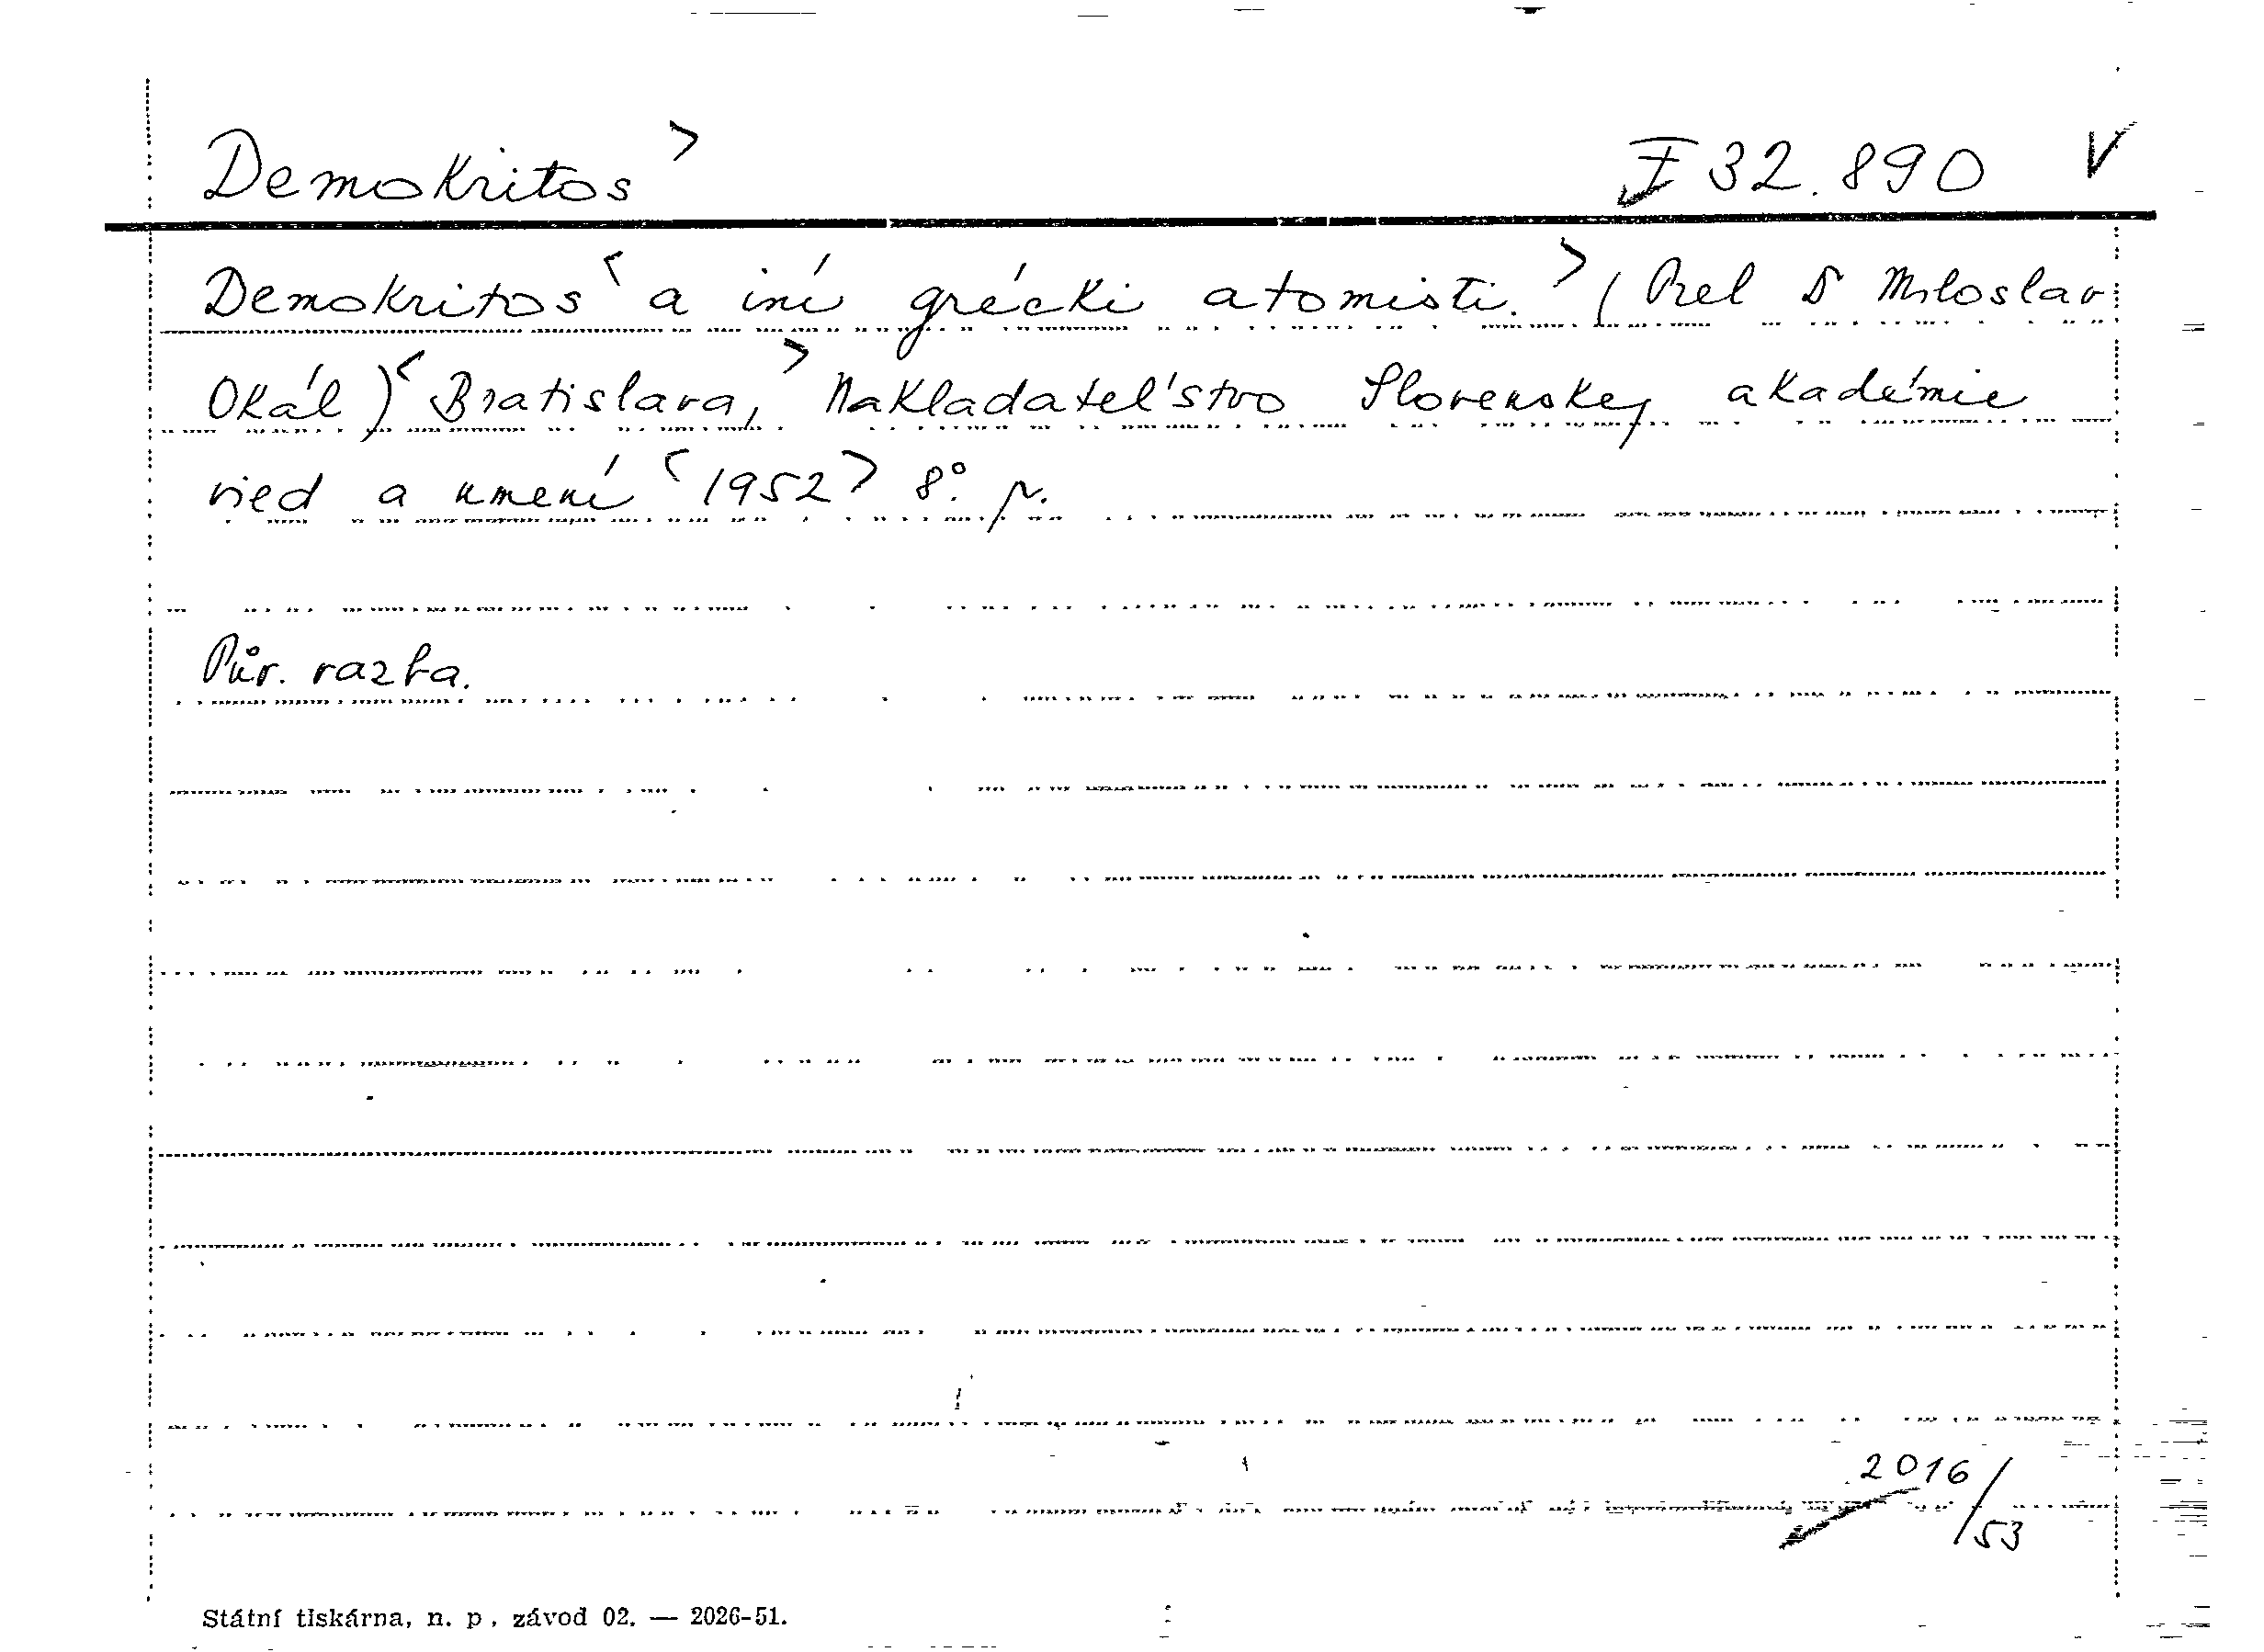 Demokritos> I 32.890 V
Demokritos< a iní grécki atomisti.> (Prel Dr Miloslav
Okál)< Bratislava,> Nakladateľstvo Slovenskej akadémie
vied a umení <1952> 8°. p.
Pův. vazba.
2016/53
Státní tiskárna, n. p., závod 02. — 2026-51.